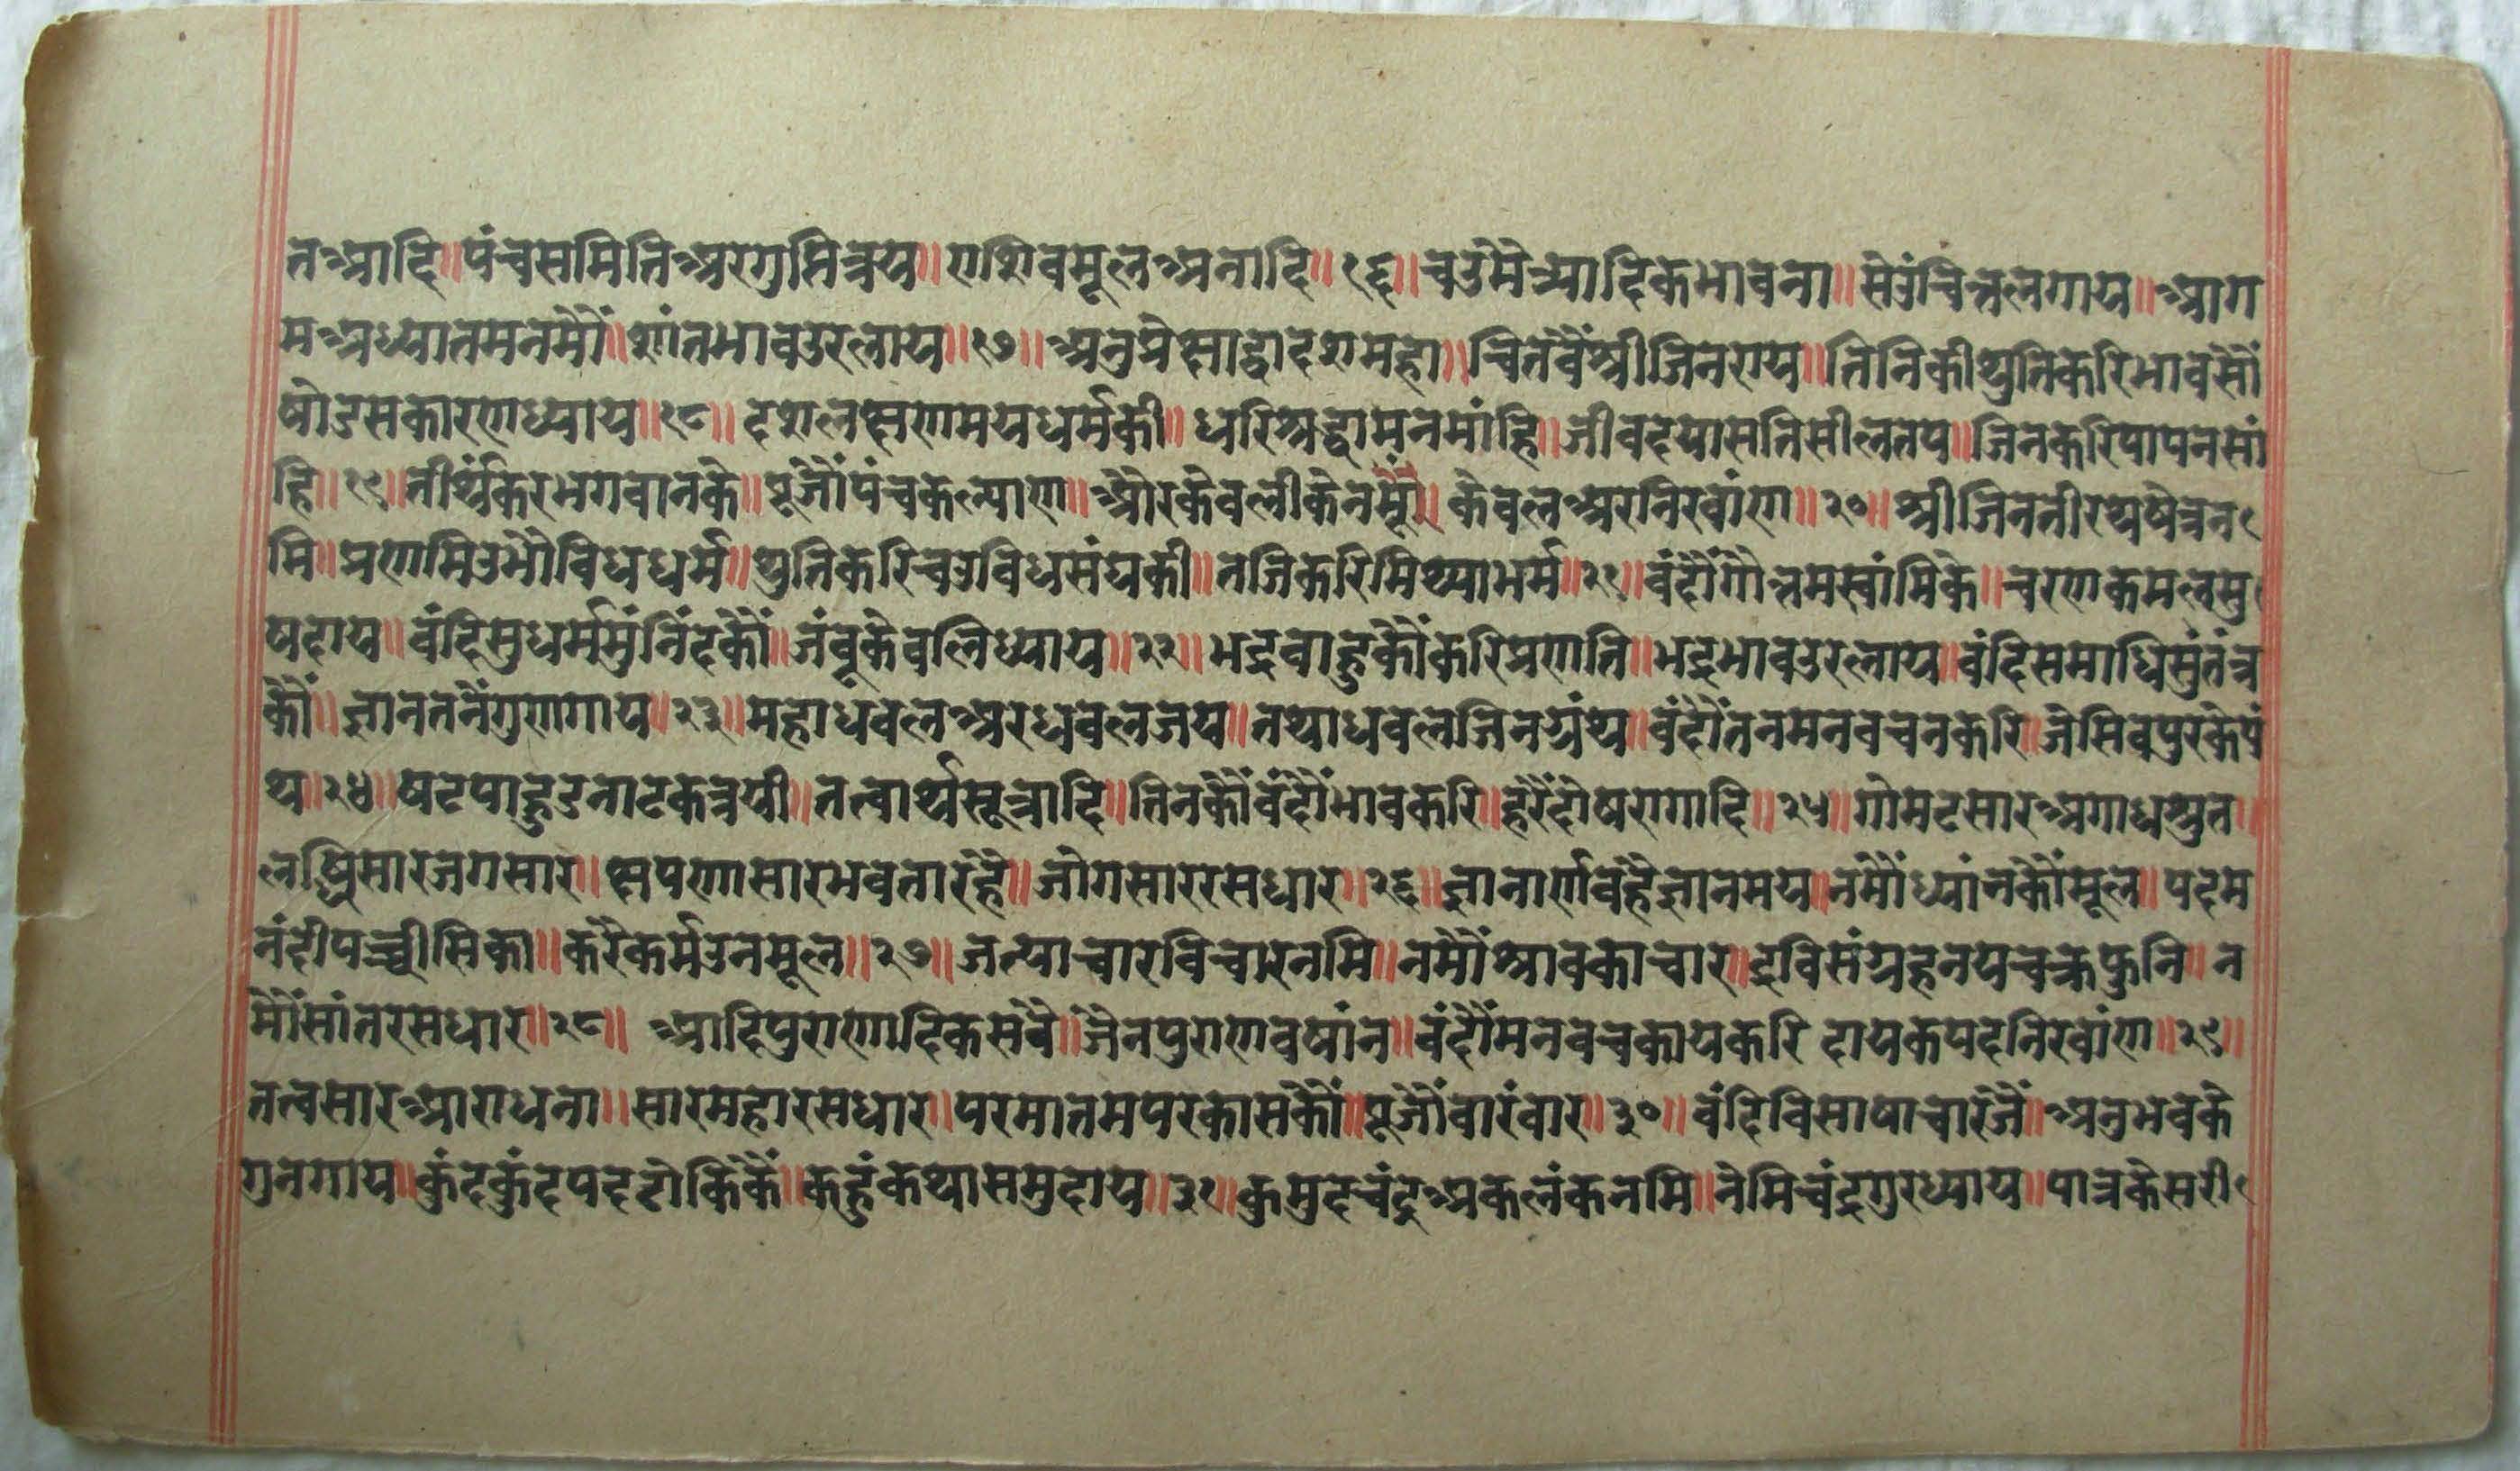 तआदि॥पंचसमितिअरगुप्तित्रय॥एशिवमूलअनादि॥१६॥चउमैत्र्यादिकभावना॥सेउंचित्तलगाय॥आग
मअध्यातमनमौं॥शांतभावउरलाय॥१७॥अनुप्रेक्षाद्वादशमहा॥चिंतवैंश्रीजिनराय॥तिनिकीथुतिकरिभावसौं
षोडसकारणध्याय॥१८॥दशलक्षणमयधर्मकी॥धरिश्रद्धामनमांहि॥जीवदयासतिसीलतप॥जिनकरिपापनसां
हि॥१९॥तीर्थंकरभगवानके॥पूजौंपंचकल्याण॥औरकेवलीकेनमूं॥केवलअरनिरवांण॥२०॥श्रीजिनतीरथषेत्रन
मि॥प्रणमिउभौविधधर्म॥थुतिकरिचउविधसंघकी॥तजिकरिमिथ्याभर्म॥२१॥वंदौंगौत्तमस्वांमिके॥चरणकमलसु
षदाय॥वंदिसुधर्ममुंनिंदकौं॥जंबूकेवलिध्याय॥२२॥भद्रवाहुकौंकरिप्रणति॥भद्रभावउरलाय॥वंदिसमाधिसुतंत्र
कौं॥ज्ञानतनैंगुणगाय॥२३॥महाधवलअरधवलजय॥तथाधवलजिनग्रंथ॥वंदौंतनमनवचनकरि॥जेसिवपुरकेपं
थ॥२४॥षटपाहुडनाटकत्रयी॥तत्वार्थसूत्रादि॥तिनकौंवंदौंभावकरि॥हरैदोषरागादि॥२५॥गोमटसारअगाधश्रुत॥
लब्धिसारजगसार॥क्षपणासारभवतारहै॥जोगसाररसधार॥२६॥ज्ञानार्णवहैज्ञानमय॥नमौंध्यांनकौंमूल॥पदम
नंदीपच्चीसिका॥करैकर्मउनमूल॥२७॥जत्याचारविचारनमि॥नमौंश्रावकाचार॥द्रविसंग्रहनयचक्रफुनि॥न
मौंसांतरसधार॥२८॥आदिपुराणादिकसबै॥जैनपुराणवषांन॥वंदौंमनवचकायकरि दायकपदनिरवांण॥२९॥
तत्वसारआराधना॥सारमहारसधार॥परमातमपरकासकौं॥पूजौंवारंवार॥३०॥वंदिविसाषाचारजैं॥अनुभवके
गुनगाय॥कुंदकुंदपदढोकिकैं॥कहुंकथासमुदाय॥३१॥कुमुदचंद्रअकलंकनमि॥नेमिचंद्रगुरध्याय॥पात्रकेसरी